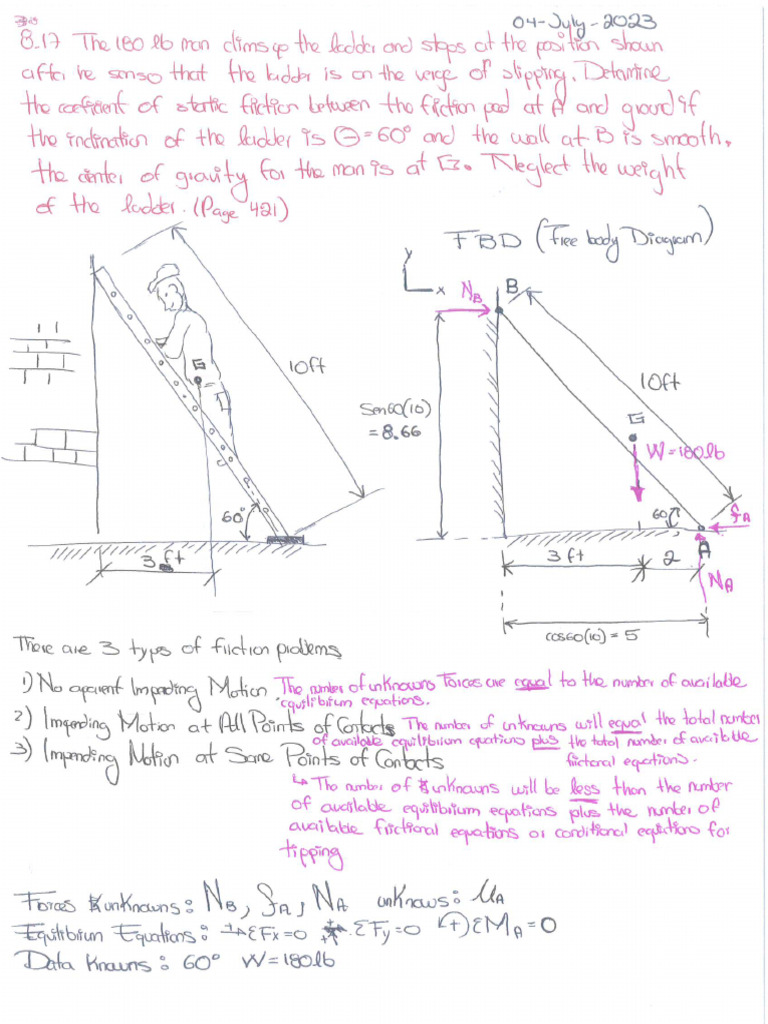 04-July-2023
8.17 The 180 lb man clims up the ladder and stops at the position shown
after he senso that the ladder is on the verge of slipping. Detamine
the coeficient of static friction between the friction pad at A and ground if
the inclination of the ladder is Θ=60° and the wall at B is smooth.
the center of gravity for the man is at G. Neglect the weight
of the ladder. (Page 421)
FBD (Free body Diagram)
y
x
NB
B
10ft
G
60°
3 ft
Sen60(10)
= 8.66
10ft
G
W=180lb
60°
fA
A
3 ft
2
NA
cos60(10) = 5
There are 3 types of friction problems
1) No aparent Impending Motion The number of unknowns Forces are equal to the number of available
equilibrium equations.
2) Impending Motion at All Points of Contacts The number of unknowns will equal the total number
of available equilibrium equations plus the total number of available
frictional equations.
3) Impending Motion at Some Points of Contacts
↳ The number of unknowns will be less than the number
of available equilibrium equations plus the number of
available frictional equations or conditional equations for
tipping
Forces unknowns: NB, fA, NA unknows: μA
Equilibrium Equations: →+ ΣFx=0 +↑ ΣFy=0 ↶+) ΣMA=0
Data Knowns: 60° W=180lb